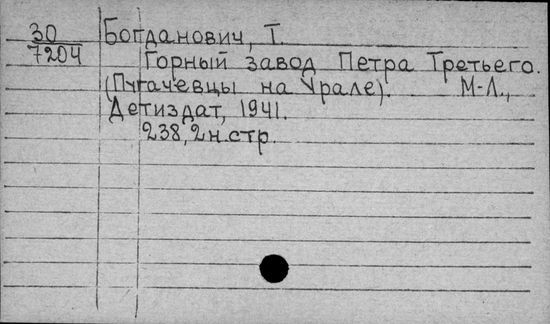 30 Богданович, Т.
7204 Горный завод Петра Третьего.
(Пугачевцы на Урале). М-Л.,
Детиздат, 1941.
238, 2 н. стр.